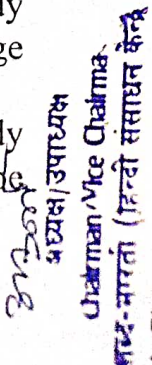 ly
ge
ly
अध्यक्ष/उपाध्यक्ष
Chairman/Vice Chairma
-भारती (हिन्दी संसाधन केन्द्र